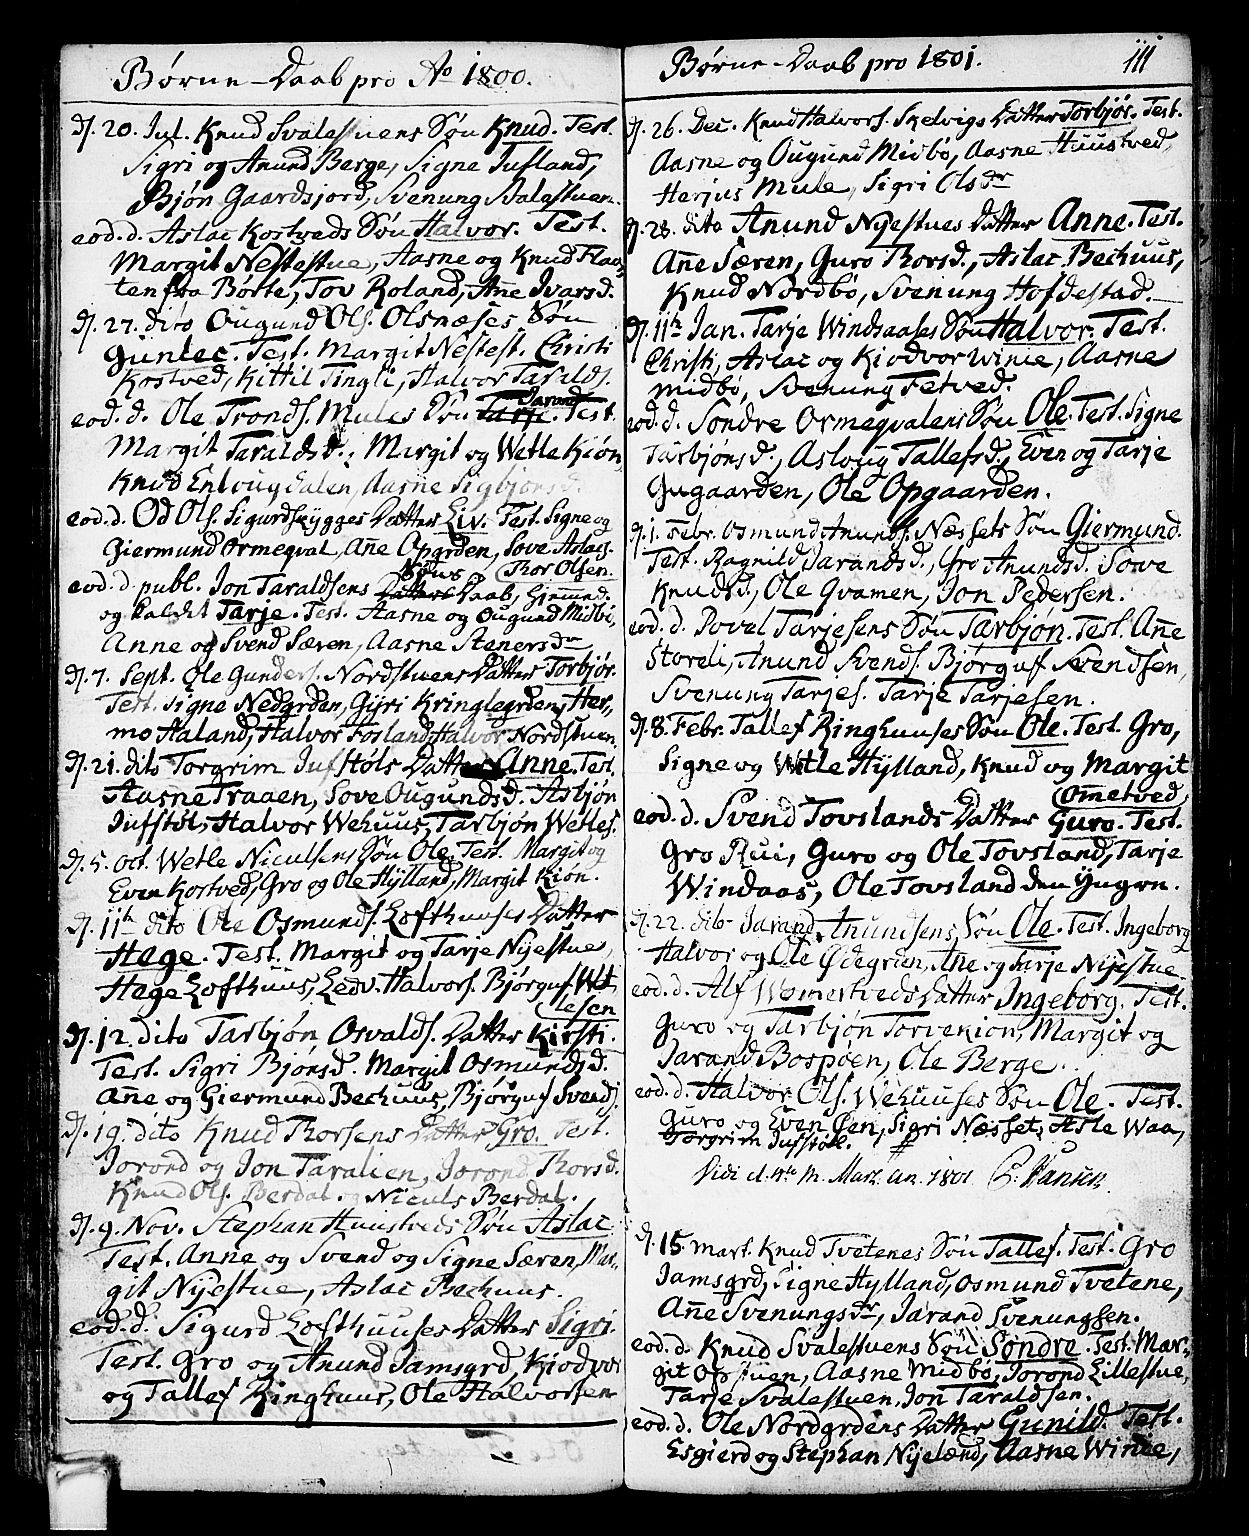 Børne-Daab pro Ao 1800.
d. 20. Jul. Knud Svalestuens Søn Knud. Test.
Sigri og Anund Berge, Signe Jufland,
Bjøn Gaardsjord, Svenung Svalestuen.
eod. d. Aslac Kostveds Søn Halvor. Test.
Margit Nestestue, Aasne og Knud Flaa-
ten fra Børte, Tov Roland, Ane Ivarsd.
d. 27. dito Ougund Ols. Olsnæses Søn
Gunlec. Test. Margit Nestest. Christi
Kostved, Kittil Tingli, Halvor Taralds.
eod. d. Ole Tronds. Mules Søn Tarje Jarand. Test.
Margit Taraldsd., Margit og Wetle Kiøn,
Knud Enlougdalen, Aasne Sigbjønsd.
eod. d. Od Ols. Sigurdsøygges Datter Liv. Test. Signe og
Giermund Ormeqval, Ane Opgrden, Sove Aslacs.
Thor Olsen.
eod. d. publ. Jon Taraldsens Datters Søns Daab, Gjemmed.
og kaldet Tarje. Test. Aasne og Ougund Midbø,
Anne og Svend Særen, Aasne Stenersdr
d. 7. Sept. Ole Gunders. Nordstuens Datter Torbjør.
Test. Signe Nedgrden, Gyri Kringlegrden, Her-
mo Haland, Halvor Fosland, Halvor Nordstuen.
d. 21. dito Torgrim Jufstøls Datter Anne. Test.
Aasne Traaen, Sove Ougundsd. Asbjøn
Jufstøl, Halvor Wehuus, Tarbjøn Wetles.
d. 5. Oct. Wetle Niculsens Søn Ole. Test. Margit og
Even Kostved, Gro og Ole Hylland, Margit Kiøn.
d. 11te dito Ole Osmunds. Lofthuuses Datter
Hege. Test. Margit og Tarje Nyestue,
Hege Lofthuus, Ledv. Halvors. Bjørguf Wet-
lesen
d. 12. dito Tarbjøn Osvalds. Datter Kirsti.
Test. Sigri Bjønsd. Margit Osmundsd.
Ane og Giermund Bechuus, Bjørguf Svends.
d. 19. dito Knud Thorsens Datter Gro. Test.
Jorond og Jon Taralien, Jorond Thorsd.
Knud Ols. Berdal og Niculs Berdal.
d. 9. Nov. Stephan Huustveds Søn Aslac
Test. Anne og Svend og Signe Særen, Mar-
git Nyestue, Aslac Bechuus.
eod. d. Sigurd Lofthuuses Datter Sigri.
Test. Gro og Anund Jamsgrd, Kiodvor
og Tallef Ringhuus, Ole Halvorsen
Børne-Daab pro 1801. 111
d. 26. Dec. Knud Halvors. Skelvigs Datter Torbjør. Test.
Aasne og Ougund Midbø, Aasne Huustved,
Herjus Mule, Sigri Olsdr
d. 28. dito Anund Nyestues Datter Anne. Test.
Ane Særen, Guro Thorsd., Aslac Bechuus,
Knud Nordbø, Svenung Hofdestad.
d. 11te Jan. Tarje Windaases Søn Halvor. Test.
Christi, Aslac og Kiodvor Winie, Aasne
Midbø, Svenung Fetved.
eod. d. Søndre Ormeqvalens Søn Ole. Test. Signe
Tarbjønsd., Asloug Tallefsd, Even og Tarje
Gugaarden, Ole Opgaarden.
d. 1. Febr. Osmund Anunds. Næssets Søn Giermund.
Test. Ragnild Jarandsd., Gro Anundsd. Sove
Knudsd., Ole Qvamen, Jon Pedersen.
eod. d. Povel Tarjesens Søn Tarbjøn. Test. Ane
Storeli, Anund Svends. Bjørguf Svendsen,
Svenung Tarjes. Tarje Tarjesen.
d. 8. Febr. Tallef Ringhuuses Søn Ole. Test. Gro,
Signe og Wetle Hylland, Knud og Margit
Ometved.
eod. d. Svend Tovslands Datter Guro. Test.
Gro Rui, Guro og Ole Tovsland, Tarje
Windaas, Ole Tovsland den Yngre.
d. 22. dito Jarand Anundsens Søn Ole. Test. Ingeborg
Halvor og Ole Ødegrden, Ane og Tarje Nyestue.
eod. d. Alf Wemestveds Datter Ingeborg. Test.
Guro og Tarbjøn Torvekion, Margit og
Jarand Bospøen, Ole Berge.
eod. d. Halvor Ols. Wehuuses Søn Ole. Test.
Guro og Even Øen, Sigri Næsset, Asle Waa,
Torgrim Jufstøl.
Vidi d. 4te M. Mart. an. 1801 Hansen
d. 15. Mart. Knud Tvetenes Søn Tallef. Test. Gro
Jamsgrd, Signe Hylland, Osmund Tvetene,
Ane Svenungsdr, Jarand Svenungsen.
eod. d. Knud Svalestuens Søn Søndre. Test. Mar-
git Opstuen, Aasne Midbø, Jorond Lillestue,
Tarje Svalestuen, Jon Taraldsen.
eod. d. Ole Nordgrdens Datter Gunild. Test.
Esgierd og Stephan Nyelænd, Aasne Winie,